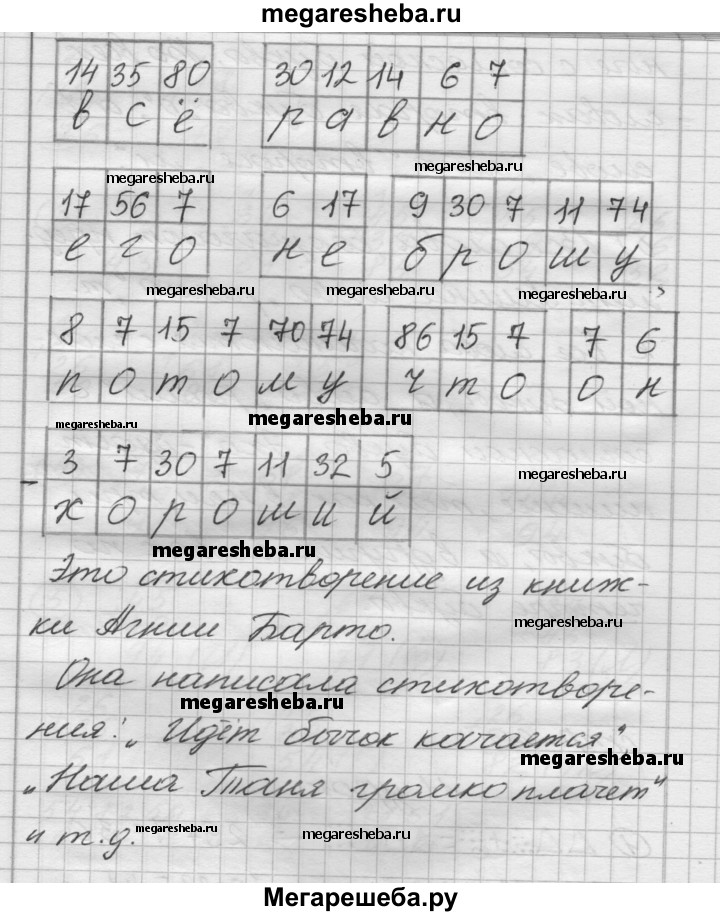 megaresheba.ru
14 35 80 30 12 14 6 7
в с ё р а в н о
megaresheba.ru megaresheba.ru
17 56 7 6 17 9 30 7 11 74
е г о н е б р о ш у ,
megaresheba.ru megaresheba.ru megaresheba.ru
8 7 15 7 70 74 86 15 7 7 6
п о т о м у ч т о о н
megaresheba.ru megaresheba.ru
3 7 30 7 11 32 5
megaresheba.ru
- х о р о ш и й
megaresheba.ru
Это стихотворение из книж-
ки Агнии Барто.
megaresheba.ru
Она написала стихотворе-
megaresheba.ru
ния: „Идёт бычок качается",
megaresheba.ru
„Наша Таня громко плачет"
и т.д.
megaresheba.ru megaresheba.ru
Мегарешеба.ру